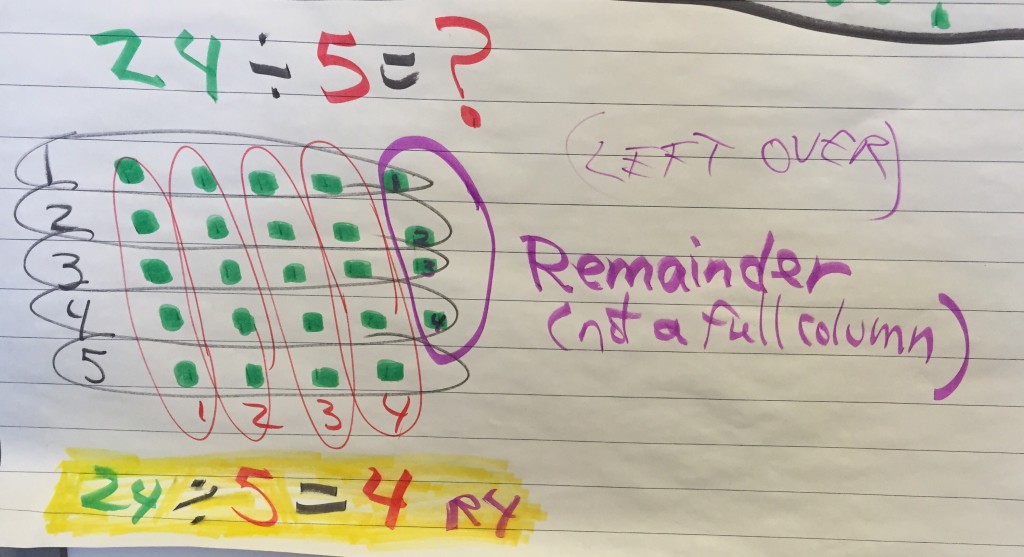 24 ÷ 5 = ?
(LEFT OVER)
1
1
2
2
3
3
4
4
5
Remainder
(not a full column)
1 2 3 4
24 ÷ 5 = 4 R4